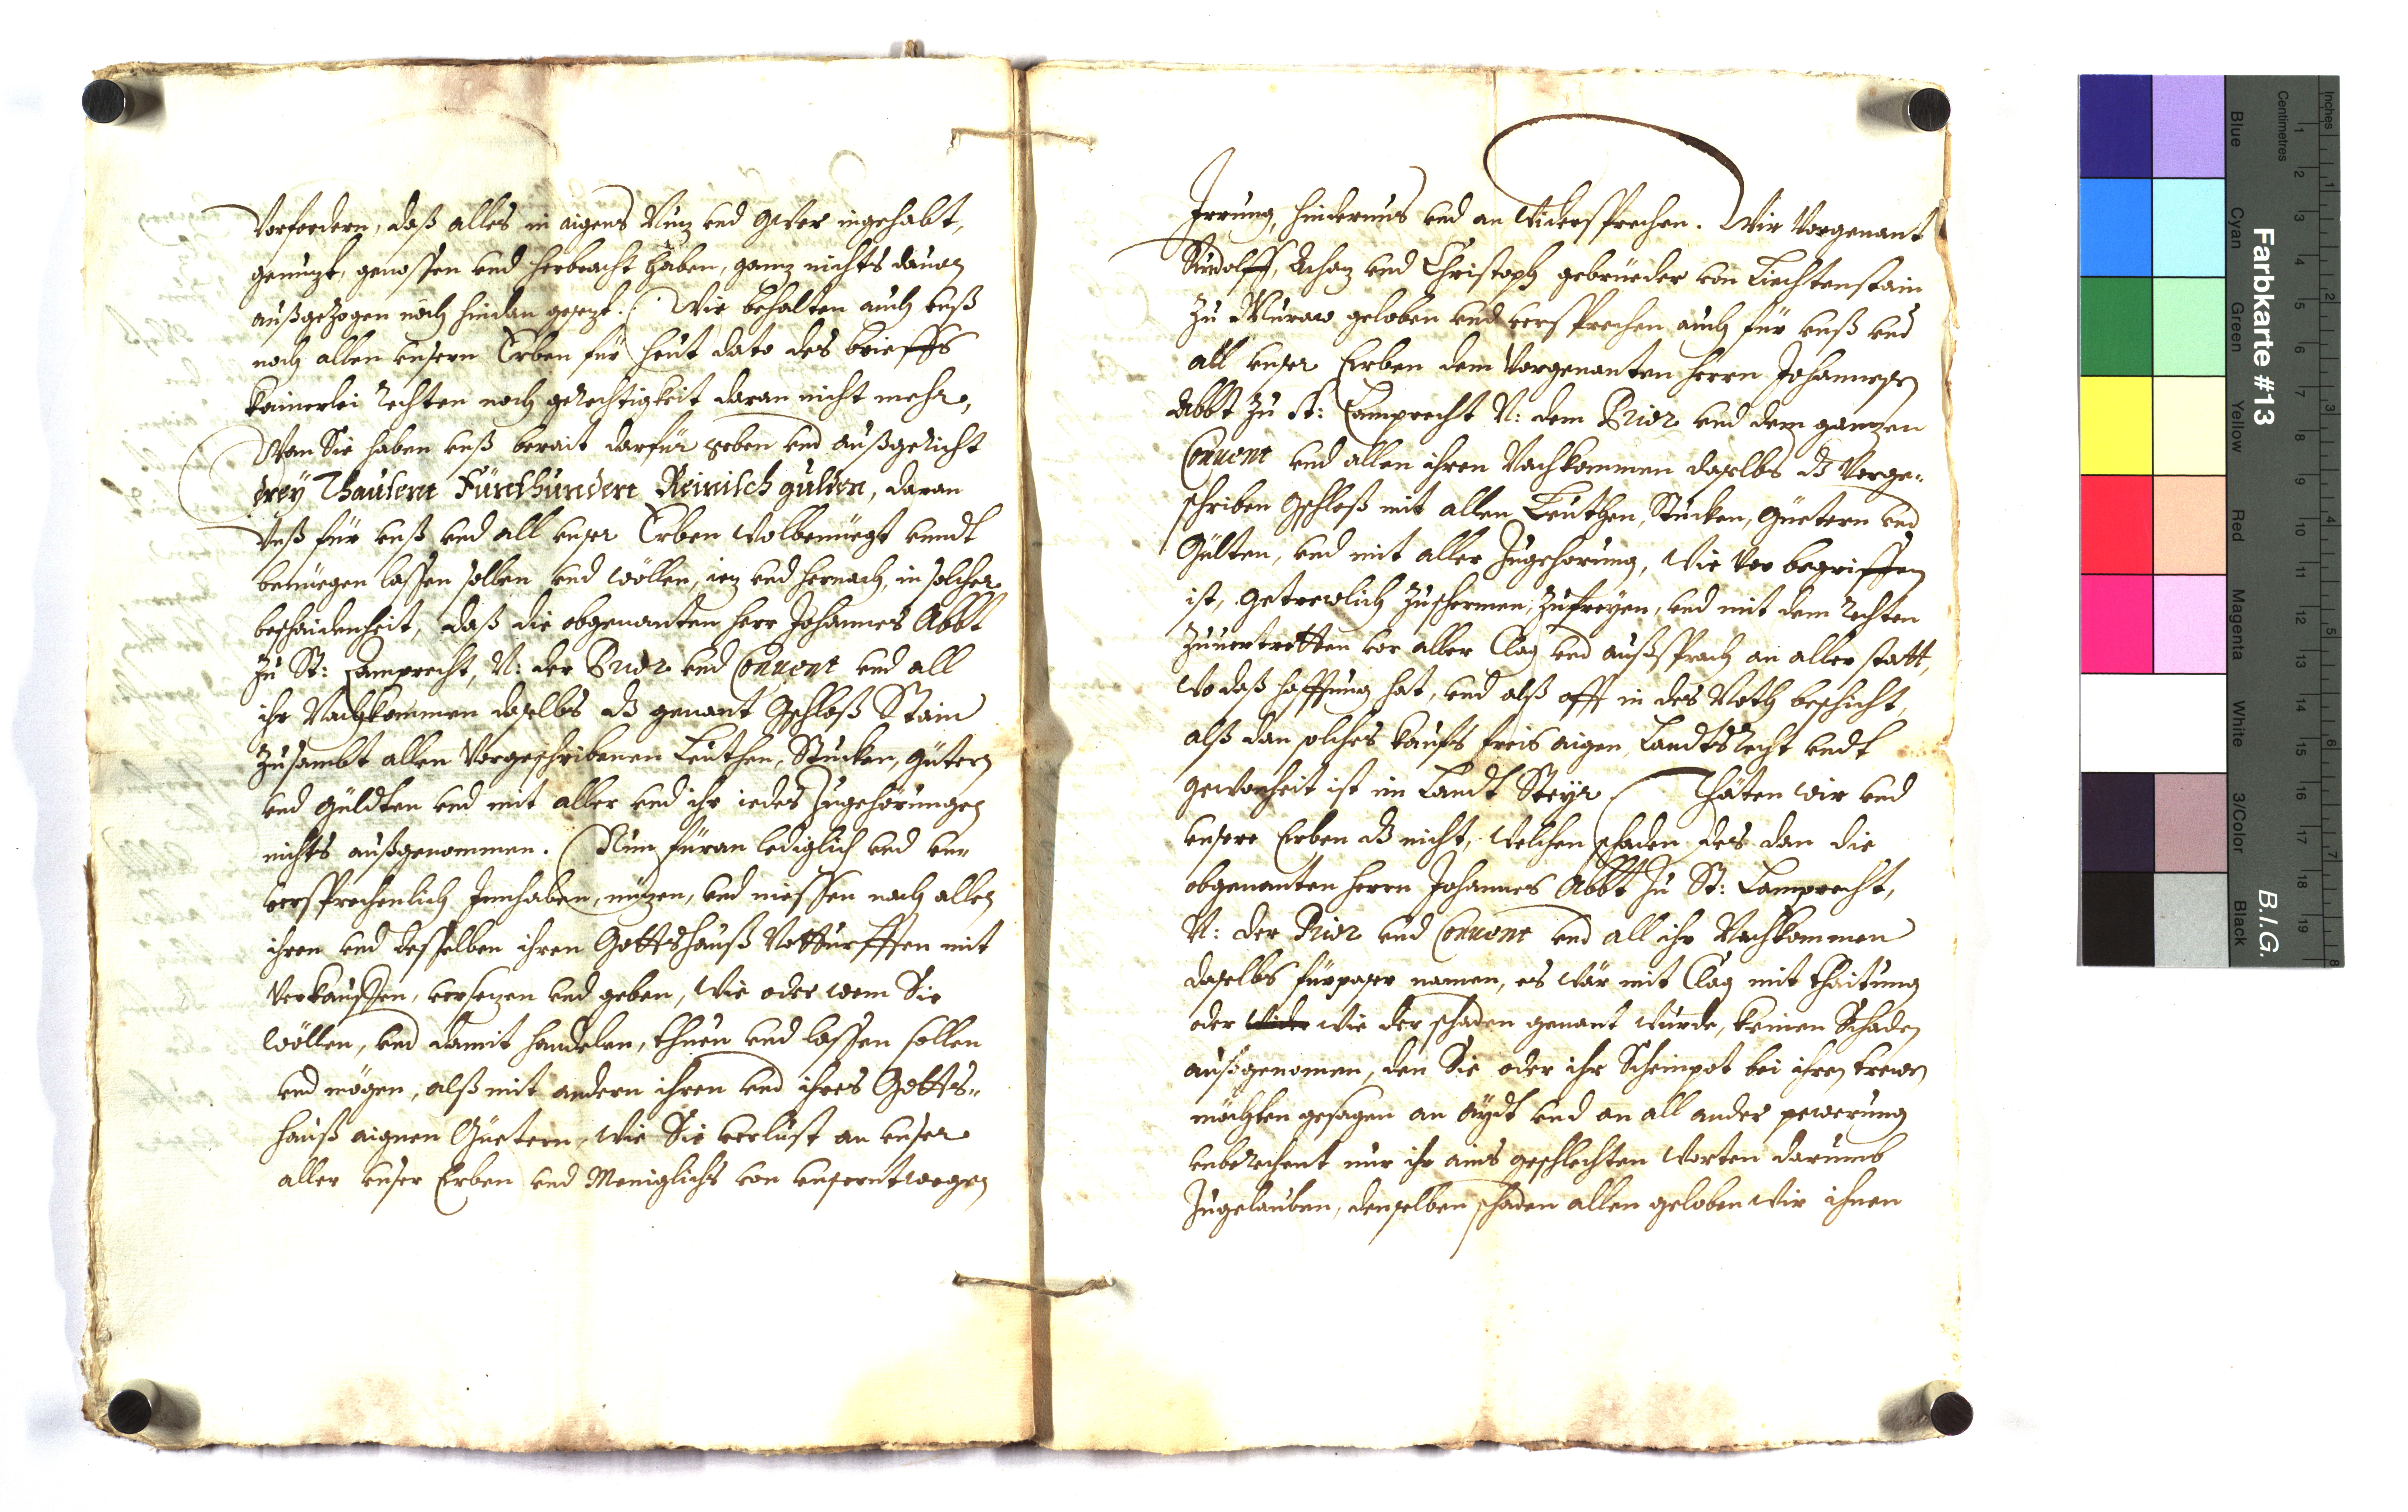 Vorfordern, daß alles in aigens Nuz vnd Gwer ingehabt,
genuzt, genossen vnd herbracht haben, ganz nichts dauon
außgezogen noch hindan gesezt. Wir behalten auch vnß
noch allen vnsern Erben für heut dato des brieffs
kainerlei rechten noch gerechtigkeit daran nicht mehr,
Wan Sie haben vnß berait darfür geben vnd außgericht
drey Thausent Fünfhundert Reinisch gulden, daran
Vnß für vnß vnd all vnser Erben wolbenüegt vnndt
benüegen lassen sollen vnd wöllen, iez vnd hernach, in solcher
beschaidenheit, daß die obgenanten herr Johannes Abbt
zu St: Lamprecht, N: der Prior vnd Conuent vnd all
ihr Nachkommen daselbs dz genant Gschloß Stain
zusambt allen Vorgeschribenen Leuthen, Stucken, Gütern
vnd Güldten vnd mit aller vnd ihr iedes Zugehörungen
nichts außgenommen. Nun füran lediglich vnd vnn
versprechenlich Innhaben, nuzen, vnd niessen nach allen
ihren vnd desselben ihren Gottshauß Notturfften mit
Verkauffen, versezen vnd geben, wie oder wem Sie
wöllen, vnd damit handelen, thuen vnd lassen sollen
vnd mögen, alß mit andern ihren vnd ihres Gotts-
hauß aignen Güetern, wie Sie verlust an vnser
aller vnser Erben vnd Meniglichs von vnserntwegen
Irrung, hindernus vnd an Widersprechen. Wir Vorgenant
Rudolff, Achaz vnd Christoph gebrüeder von Liechtenstain
zu Muraw geloben vnd versprechen auch für vnß vnd
all vnser Erben dem Vorgenanten herrn Johannesen
Abbt zu St: Lamprecht N: dem Prior vnd dem ganzen
Conuent vnd allen ihren Nachkommen daselbs dz Vorge-
schriben Gschloß mit allen Leuthen, Stucken, Güetern vnd
Gülten, vnd mit aller Zugehorung, wie vor begriffen
ist, getrewlich zuschermen, zufreyen, vnd mit dem rechten
zuuertretten vor aller Clag vnd außsprach an aller statt,
wo daß hafftung hat, vnd alß offt in des Noth beschicht,
alß dan solches kaufs freis aigen Landts Recht vndt
gewonheit ist im Landt Steyr. Thäten wir vnd
vnsere Erben dz nicht, welchen schaden des dan die
obgenanten herrn Johannes Abbt zu St: Lamprecht,
N: der Prior vnd Conuent vnd all ihr Nachkommen
daselbs fürpaser namen, es wär mit Clag mit thaitung
oder wider wie der schaden genant wurde, keinen Schaden
außgenomen, den Sie oder ihr Scheinpot bei ihren trewen
möchten gesagen an Aydt vnd an all ander pewerung
vnberechent nur ihr ains geschlechten Worten darumb
Zugelauben, denselben schaden allen geloben wir ihnen